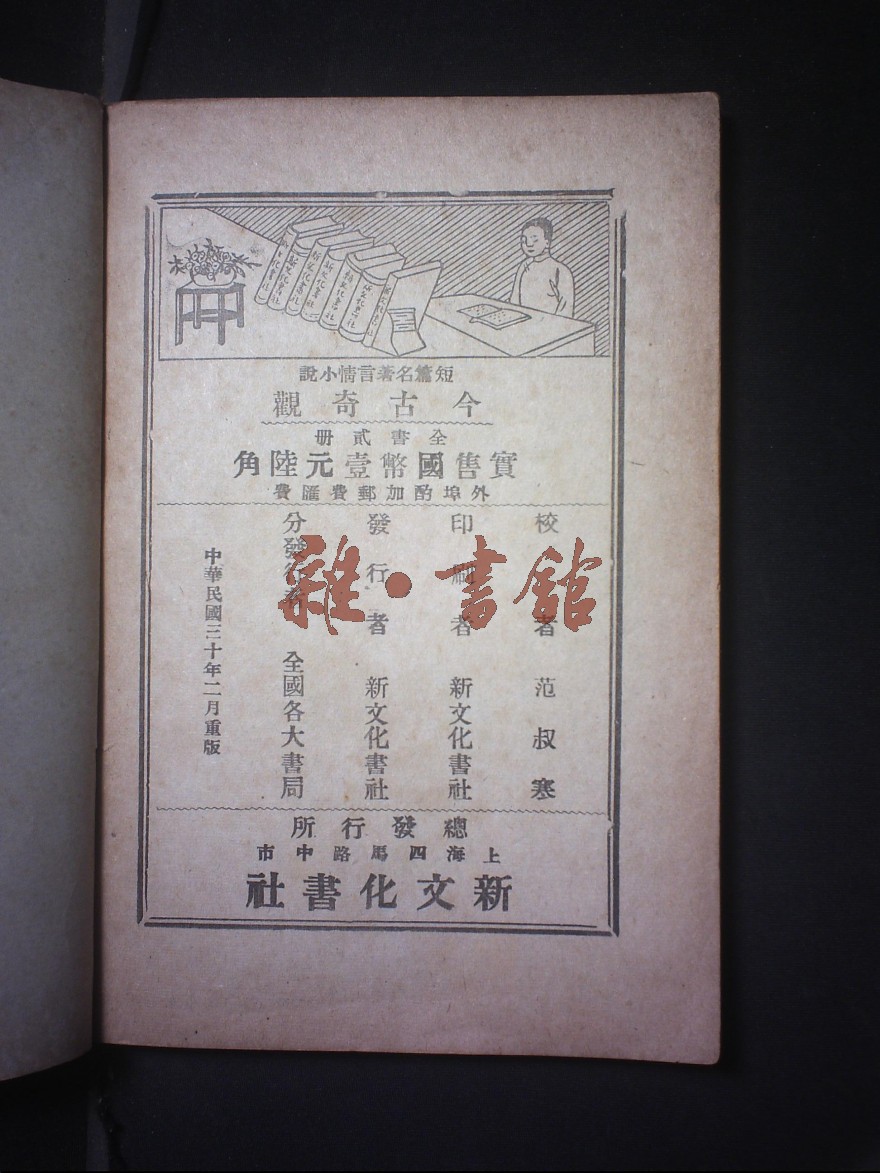 新文化書社
新文化書社
新文化書社
新文化書社
短篇名著言情小說
今古奇觀
全書貳册
實售國幣壹元陸角
外埠酌加郵費匯費
校者 范叔寒
印刷者 新文化書社
發行者 新文化書社
分發行者 全國各大書局
中華民國三十年二月重版
總發行所
上海四馬路中市
新文化書社
雜·書館